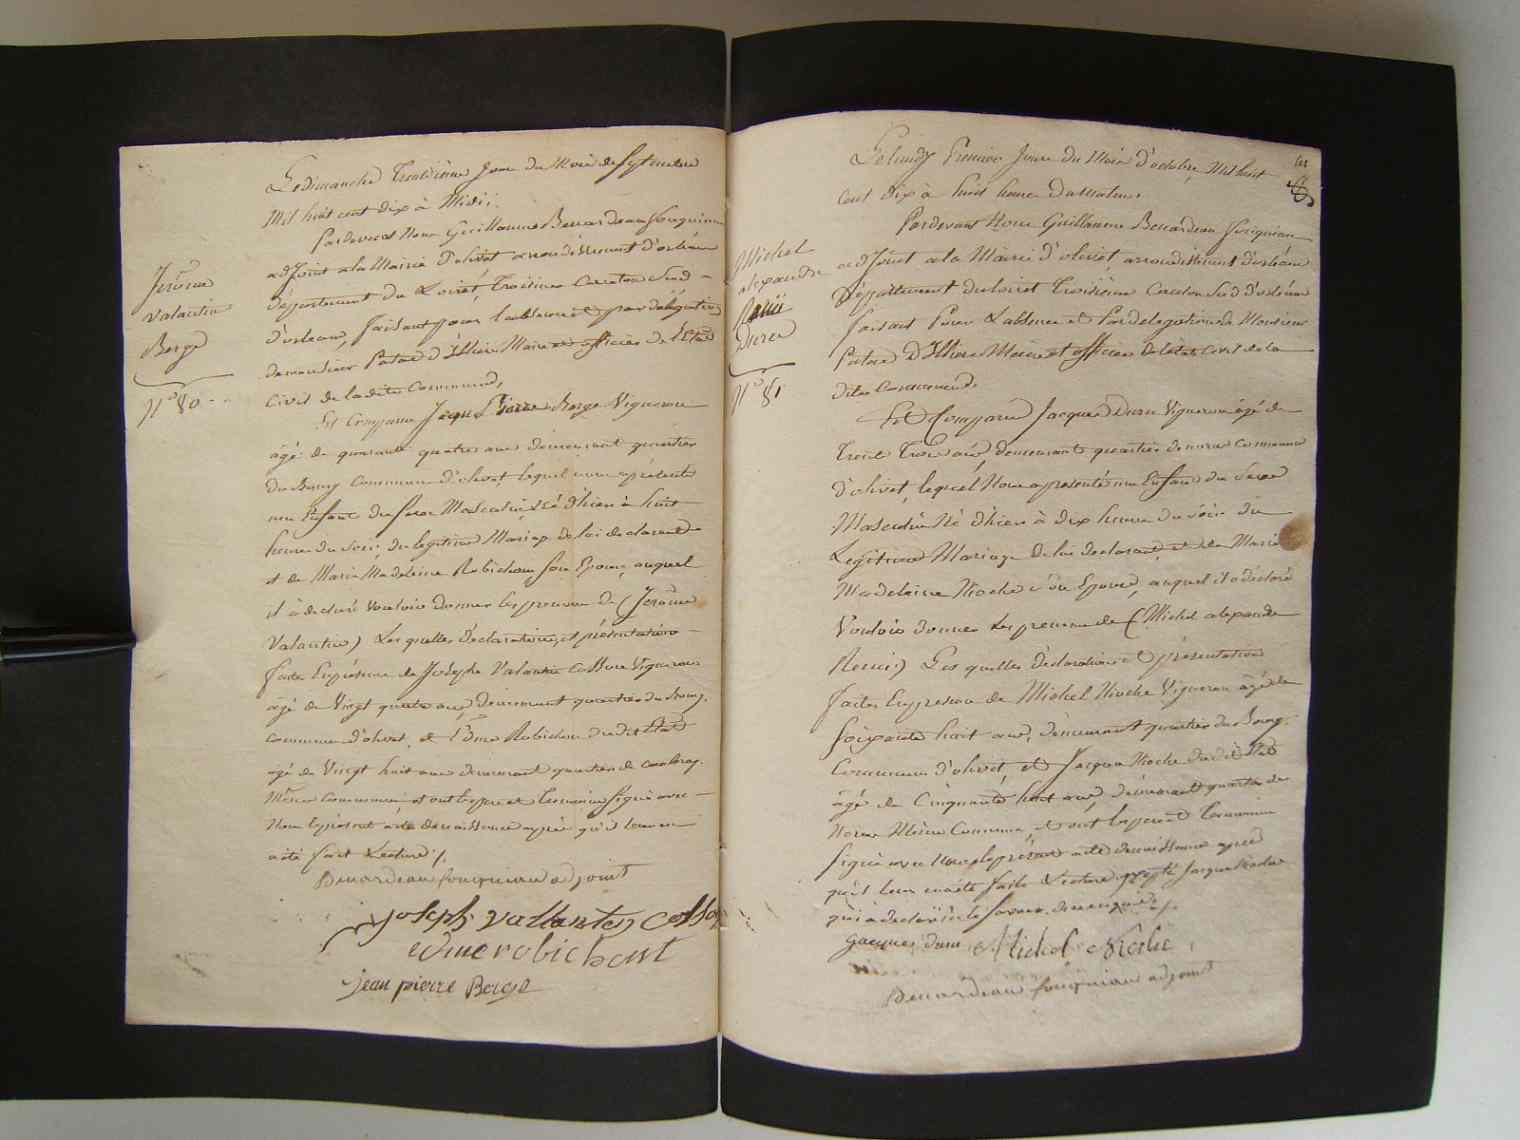 Jerôme
valantin
Berge
N.º 80
Le Dimanche Trentième Jour du Mois de Septembre
Mil huit cent dix à Midi;
Pardevant Nous Guillaume Benardeau fouquiau
adjoint a la Mairie d'olivet arrondissement d'orleans
département du Loiret, Troisième Canton Sud
d'orleans, faisant pour l'absence et par délégation
de monsieur Patas d'Illiers Maire et officier de l'Etat
Civil de la dite Commune,
Est Comparu Jean Pierre Berge Vigneron
âgé de quarante quatre ans demeurant quartier
du Bourg Commune d'olivet, lequel nous a présenté
un Enfant du sexe Masculin, né d'hier à huit
heures du soir, du legitime Mariage de lui declarant
et de Marie Madeleine Robichon son Epouse, auquel
il à declaré vouloir donner les prenoms de (Jerôme
Valantin) Les quelles declaration et présentation
faites En présence de Joseph Valantin Cosson Vigneron
âgé de Vingt quatre ans, demeurant quartier du Bourg,
Commune d'olivet, et Edme Robichon du dit Etat
âgé de Vingt huit ans demeurant quartier de
Même Commune, et ont les pere et Temoins Signé avec
Nous le présent acte de naissance après qu'il leur en
a été fait Lecture ./.
Benardeau fouquiau adjoint
joseph vallanten cosson
edme robichont
jean pierre Berge
Michel
alexandre
Remi
Duru
N.º 81
Le lundy Premier Jour du Mois d'octobre Mil huit
Cent dix à huit heures du matin,
Pardevant Nous Guillaume Benardeau fouquiau
adjoint a la Mairie d'olivet, arrondissement d'orleans
Département du loiret Troisième Canton Sud d'orleans
faisant Pour L'absence et Par delegation de Monsieur
Patas D'Illiers Maire et officier de l'etat Civil de la
dite Commune,
Est Comparu Jacques Duru Vigneron âgé de
Trente Trois ans, demeurant quartier de Commune
d'olivet, lequel Nous a presenté un Enfant du Sexe
Masculin Né d'hier à dix heures du soir du
Legitime Mariage de lui declarant, et de Marie
Madeleine Nioche son Epouse, auquel il a déclaré
Vouloir donner les prenoms de (Michel alexandre
Remi) Les quelles déclaration et présentation
faites En présence de Michel Nioche Vigneron âgé de
Soixante huit ans, demeurant quartier du Bourg,
Commune d'olivet, et Jacques Nioche du dit Etat
âgé de Cinquante huit ans, demeurant quartier de
Même Commune, et ont les pere et Temoins
Signé avec Nous le présent acte de naissance après
qu'il leur en a été faite Lecture, excepté Jacques Nioche
qui à declaré ne le savoir, de ce enquis ./.
Jacques duru Michel Nioche
Benardeau fouquiau adjoint